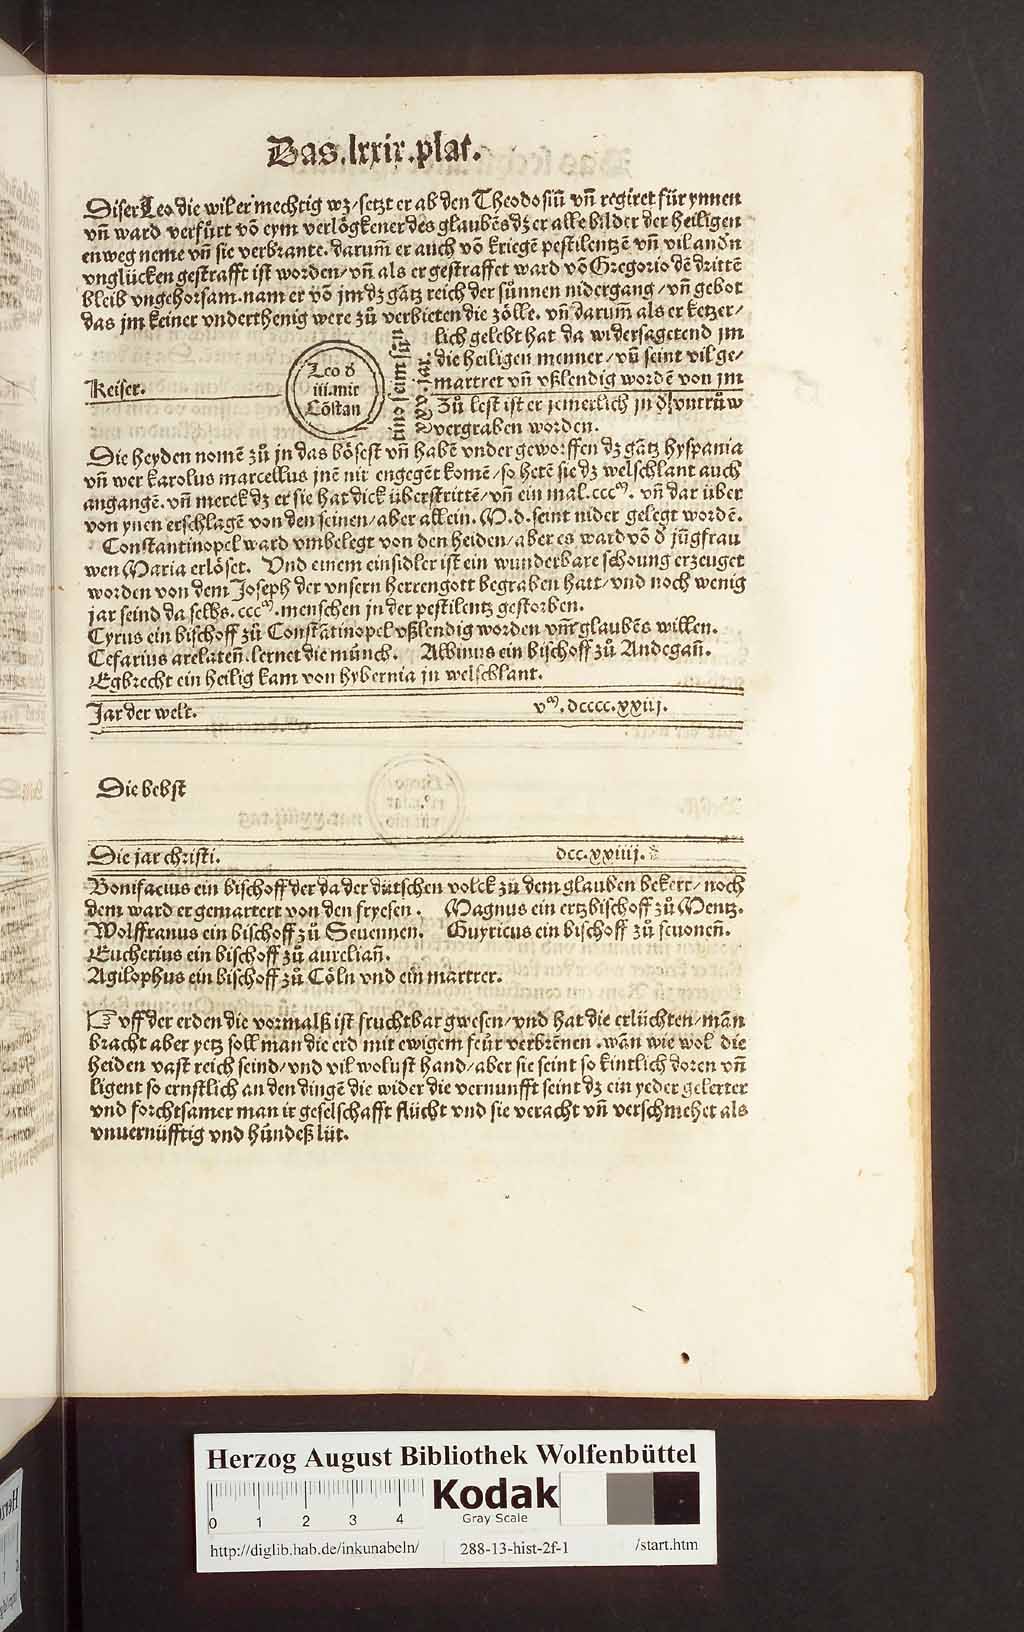 Das.lxxix.plat.
Diser Leo die wil er mechtig wz/setzt er ab den Theodosiū vn̄ regiret für ynnen
vn̄ ward verfürt vō eym verlögkener des glaubēs dz er alle bilder der heiligen
enweg neme vn̄ sie verbrante. darum̄ er auch vō kriegē pestilentzē vn̄ vil andn
vnglücken gestrafft ist worden/vn̄ als er gestraffet ward vō Gregorio dē drittē
bleib vngehorsam.nam er vō jm dz gātz reich der sůnnen nidergang/vn̄ gebot
das jm keiner vnderthenig were zů verbieten die zölle. vn̄ darum̄ als er ketzer/
lich gelebt hat da widersagetend jm
die heiligen menner/vn̄ seint vil ge/
martret vn̄ vßlendig wordē von jm
Zů lest ist er jemerlich in d vntrůw
vergraben worden.
Keiser.
Leo d
iii.mit
Cōstan
tino seim sun
xxv.jar.
Die heyden nomē zů jn das bösest vn̄ habē vnder geworffen dz gātz hyspania
vn̄ wer karolus marcellus jnē nit engegēt komē/so hetē sie dz welschlant auch
angangē. vn̄ merck dz er sie hat dick überstrittē/vn̄ ein mal.cccᵐ. vn̄ dar über
von ynen erschlagē von den seinen/aber allein.M.d.seint nider gelegt wordē.
Constantinopel ward vmbelegt von den heiden/aber es ward vō d jūgfrau
wen Maria erlöset. Vnd einem einsidler ist ein wunderbare schoung erzeuget
worden von dem Joseph der vnsern herrengott begraben hatt/vnd noch wenig
jar seind da selbs.cccᵐ.menschen jn der pestilentz gestorben.
Cyrus ein bischoff zů Constātinopel vßlendig worden vm̄ glaubēs willen.
Cesarius arelateñ.lernet die münch. Albinus ein bischoff zů Andegañ.
Egbrecht ein heilig kam von hybernia jn welschlant.
Jar der welt. vᵐ.dcccc.xxiij.
Die bebst
Die jar christi. dcc.xxiiij.
Bonifacius ein bischoff der da der dütschen volck zů dem glauben bekert/noch
dem ward er gemartert von den fryesen. Magnus ein ertzbischoff zů Mentz.
Wolffranus ein bischoff zů Seuennen. Guyricus ein bischoff zů seuoneñ.
Eucherius ein bischoff zů aureliañ.
Agilophus ein bischoff zů Cöln vnd ein martrer.
☞ vff der erden die vormalß ist fruchtbar gwesen/vnd hat die erlüchten/mān
bracht aber yetz soll man die erd mit ewigem feür verbrēnen .wān wie wol die
heiden vast reich seind/vnd vil wolust hand/aber sie seint so kintlich doren vn̄
ligent so ernstlich an den dingē die wider die vernunfft seint dz ein yeder gelerter
vnd forchtsamer man ir geselschafft flücht vnd sie veracht vn̄ verschmehet als
vnuernüfftig vnd hündeß lüt.
Herzog August Bibliothek Wolfenbüttel
0 1 2 3 4
Kodak
Gray Scale
http://diglib.hab.de/inkunabeln/ 288-13-hist-2f-1 /start.htm